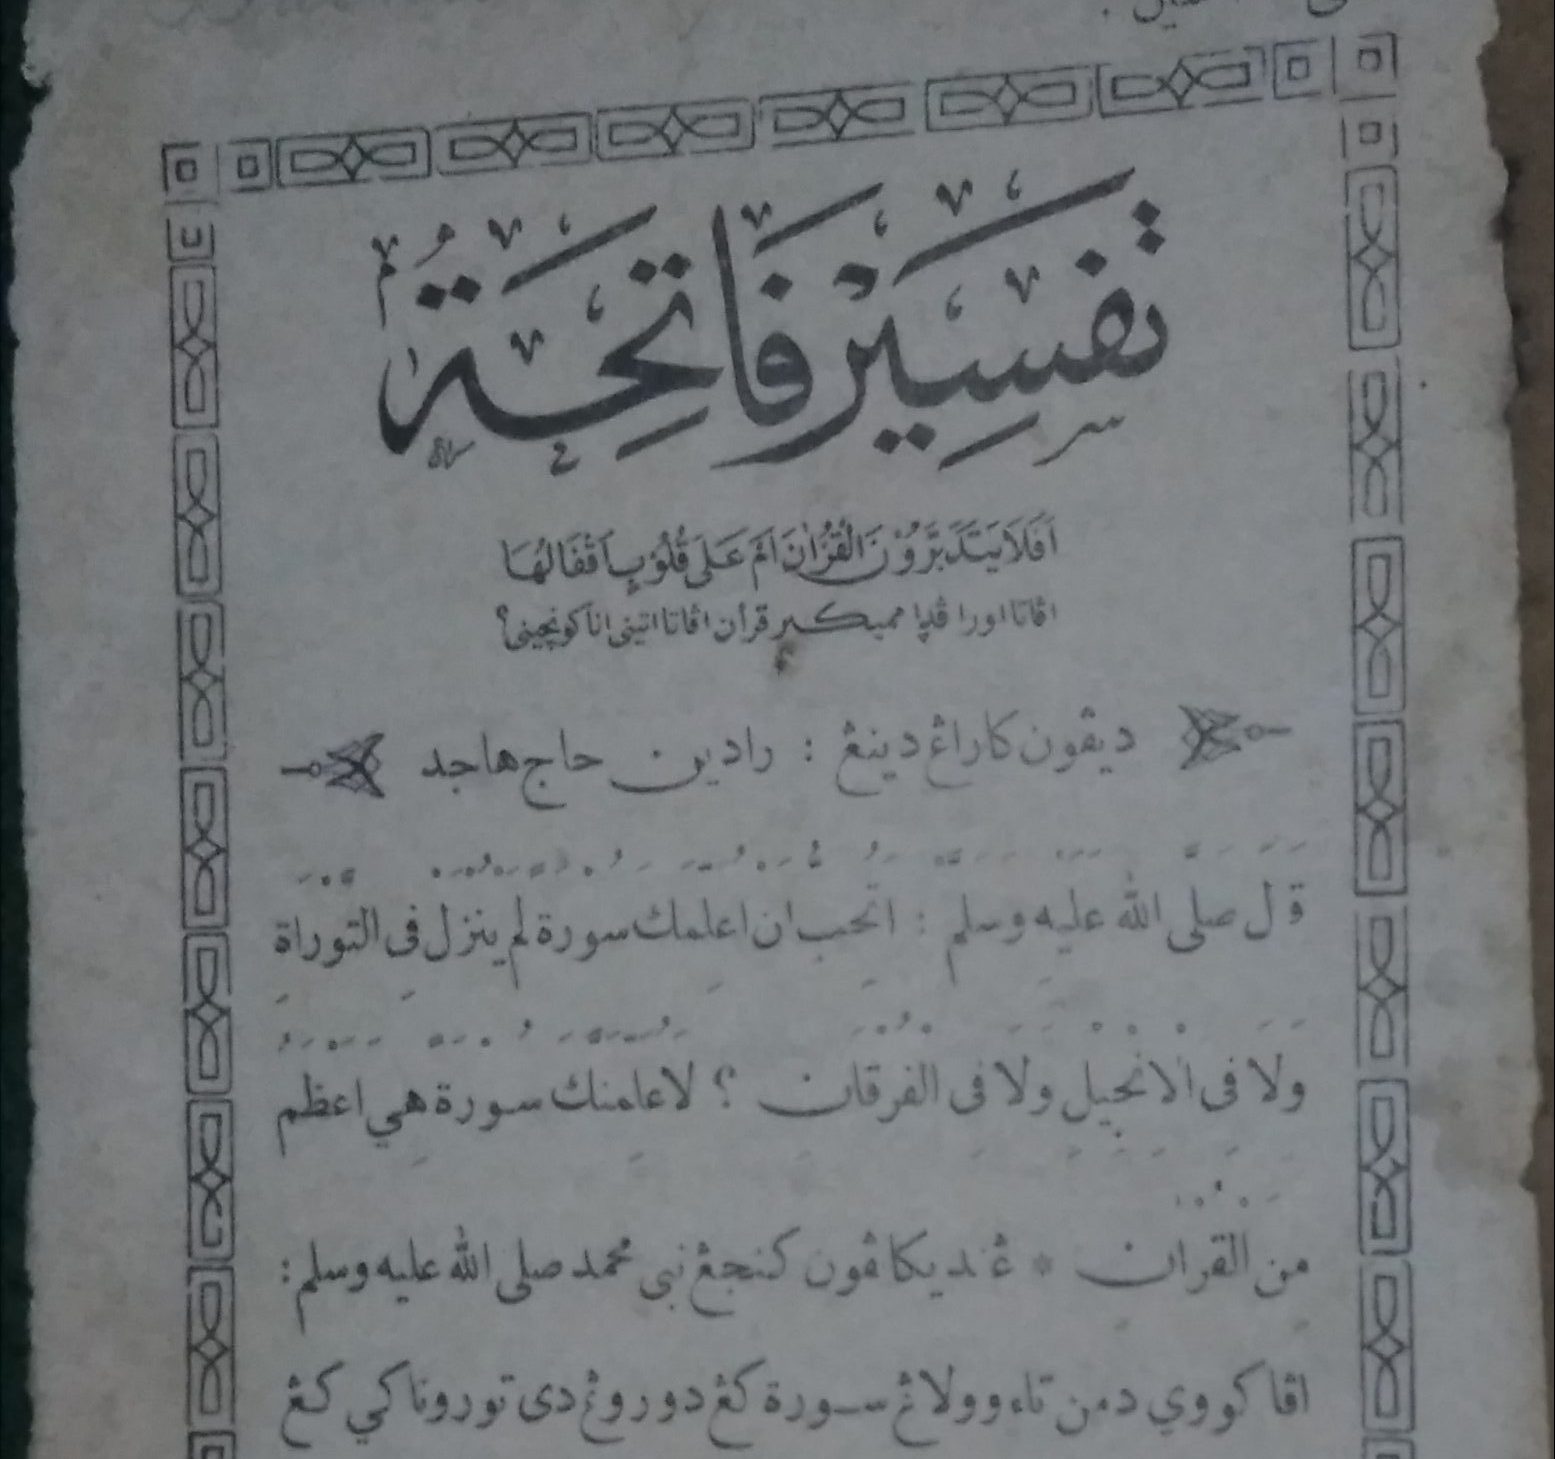 تَفْسِيْر فَاتِحَةْ
اَفَلَا يَتَدَبَّرُوْنَ الْقُرْاٰنَ اَمْ عَلَى قُلُوْبٍ اَقْفَالُهَا
اڤاتا اورا ڤدا مميكير قرأن اڤاتا اتيني انا كونچيني؟
ديڤون كاراڠ دينيڠ : رادين حاج هاجد
قل صلى الله عليه وسلم : اتحب ان اعلمك سورة لم ينزل فى التوراة
ولا فى الانجيل ولا فى الفرقان ؟ لاعلمنك سورة هي اعظم
من القران * ڠنديكا ڤون كنجڠ نبي محمد صلى الله عليه وسلم :
اڤا كووي دمن تاء وولاڠ سورة كڠ دوروڠ دى تورونا كي كڠ